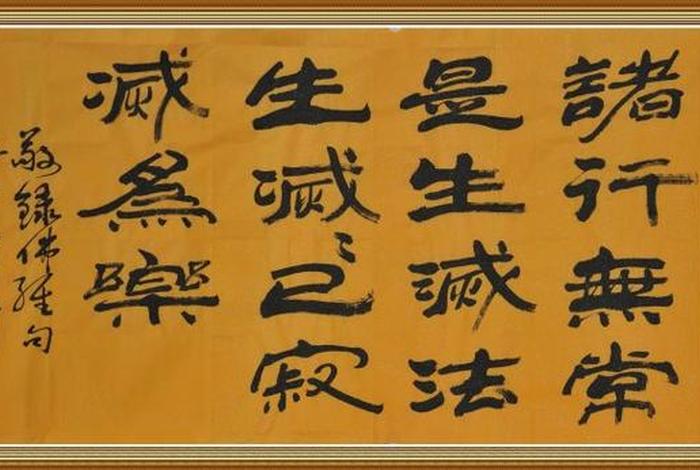 諸行無常
是生滅法
生滅〻已寂
滅為樂
敬録佛經句